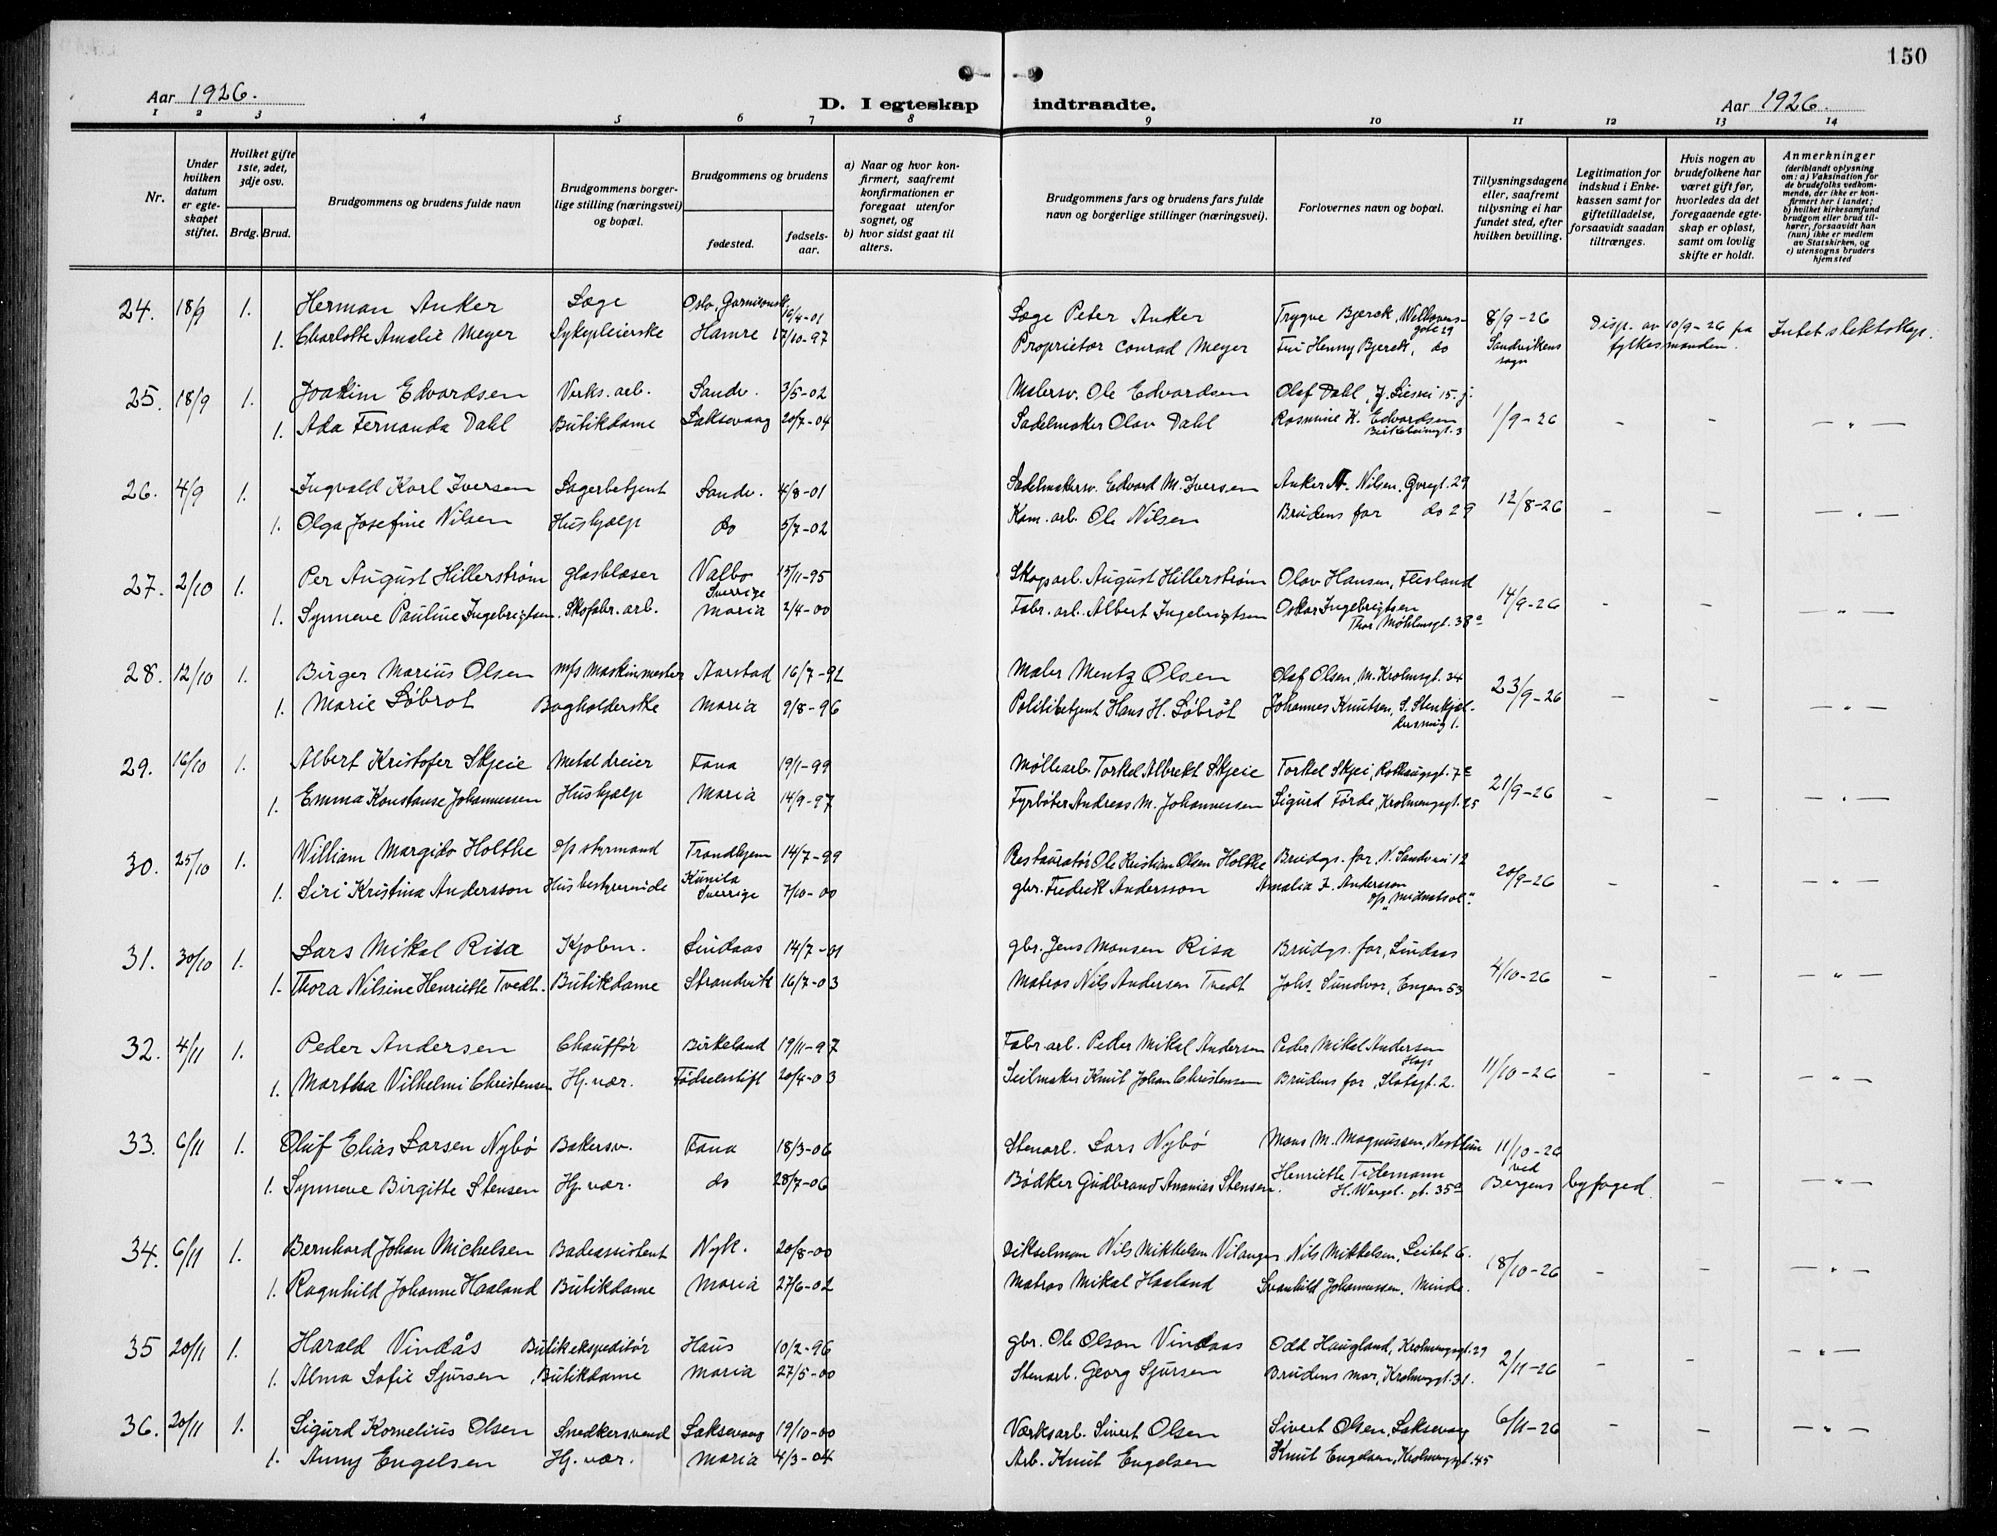 150
Aar 1926.
D. I egteskap indtraadte.
Aar 1926.
1 2 3 4 5 6 7 8 9 10 11 12 13 14
Nr.
Under hvilken datum er egteskapet stiftet.
Hvilket gifte 1ste, 2det, 3dje osv.
Brdg. Brud.
Brudgommens og brudens fulde navn
Brudgommens borgerlige stilling (næringsvei) og bopæl.
Brudgommens og brudens
fødested.
fødselsaar.
a) Naar og hvor konfirmert, saafremt konfirmationen er foregaat utenfor sognet, og
b) hvor sidst gaat til alters.
Brudgommens fars og brudens fars fulde navn og borgerlige stillinger (næringsvei).
Forlovernes navn og bopæl.
Tillysningsdagene eller, saafremt tillysning ei har fundet sted, efter hvilken bevilling.
Legitimation for indskud i Enkekassen samt for giftetilladelse, forsaavidt saadan tiltrænges.
Hvis nogen av brudefolkene har været gift før, hvorledes da det foregaaende egteskap er opløst, samt om lovlig skifte er holdt.
Anmerkninger
(deriblandt oplysning om: a) Vaksination for de brudefolks vedkommende, der ikke er konfirmert her i landet; b) hvilket kirkesamfund brudgom eller brud tilhører, forsaavidt han (hun) ikke er medlem av Statskirken, og c) utensogns bruders hjemsted
24. 18/9 1. Herman Anker Læge Oslo, Garnisonsk. 16/4-01 Læge Peter Anker Trygve Bjerck, Welhavensgate 29 8/9-26 Disp. av 10/9-26 fra Intet slektskap.
1. Charlotte Amalie Meyer Sykepleierske Hamre 17/10-97 Proprietær Conrad Meyer Fru Henny Bjerck, do Sandvikens sogn fylkesmanden.
25. 18/9 1. Joakim Edvardsen Verks. arb. Sandv. 3/5-02 Malersv. Ole Edvardsen Olaf Dahl, J. Liesvei 15. j.
1. Ada Fernanda Dahl Butikdame Laksevaag 20/7-04 Sadelmaker Olav Dahl Rasmine K. Edvardsen 1/9-26 - - - " -
26. 4/9 1. Ingvald Karl Iversen Lagerbetjent Sandv. 4/8-01 Sadelmakersv. Edvard M. Iversen Anker N. Nilsen, Øvregt. 29 12/8-26
1. Olga Josefine Nilsen Hushjælp do 5/7-02 Kom. arb. Ole Nilsen Brudens far do 29 - - - " -
27. 2/10 1. Per August Hillerstrøm glasblæser Valbo Sverige 15/11-95 Skogarb. August Hillerstrøm Olav Hansen, Flesland 14/9-26
1. Synneve Pauline Ingebrigtsen. Skofabr. arb. Maria 2/4-00 Fabr. arb. Albert Ingebrigtsen Oskar Ingebrigtsen Thor Møhlensgt. 38a - - - " -
28. 12/10 1. Birger Marius Olsen m/s Maskinmester Aarstad 16/7-91 Maler Mentz Olsen Olaf Olsen, M. Krohnsgt. 34 23/9-26
1. Marie Løbrot Bogholderske Maria 9/8-96 Politibetjent Hans H. Løbrot Johannes Knutsen, - - - " -
29. 16/10 1. Albert Kristofer Skjeie Metaldreier Fana 19/1-99 Møllearb. Torkel Albrekt Skjeie Torkel Skjei, 21/9-26
1. Emma Konstanse Johannessen Hushjælp Maria 14/9-97 Fyrbøter Andreas M. Johannessen Sigurd Førde, Krohnengsgt. 25 - - - " -
30. 25/10 1. William Margido Holthe o/p styrmand Trondhjem 14/7-99 Restauratør Ole Kristian Olsen Holthe Brudgs. far, N. Sandsvei 12 20/9-26
1. Siri Kristina Andersson Husbestyrerinde Sverige 7/10-00 gbr. Fredrik Andersson Amalia F. Andersson o/p "Midnatsol". - - - " -
31. 30/10 1. Lars Mikal Risa Kjøbm. Lindaas 14/7-01 gbr. Jens Monsen Risa Brudgs. far, Lindaas 4/10-26
1. Thora Nilsine Henriette Tvedt. Butikdame Strandvik 16/7-03 Matros Nils Andersen Tvedt Johs. Sundvor, Engen 53 - - - " -
32. 4/11 1. Peder Andersen Chauffør Birkeland 19/11-97 Fabr arb. Peder Mikal Andersen Peder Mikal Andersen Hop 11/10-26
1. Martha Vilhelmi Christensen Hj. vær. Fødselsstift 20/4-03 Seilmaker Knut Johan Christensen Brudens far, Slotsgt. 2. - - - " -
33. 6/11 1. Oluf Elias Larsen Nybø Bakersv. Fana 18/3-06 Stenarb. Lars Nybø Mons M. Magnussen, Nesttun 11/10-26 ved
1. Synneve Birgitte Stensen Hj. vær. do 28/7-06 Bødker Gudbrand Ananias Stensen. Henriette Tidemann H. Wergel. gt. 35a Bergens byfoged. - - " -
34. 6/11 1. Bernhard Johan Michelsen Badeassistent Nyk. 20/8-00 Dikselmann Nils Mikkelsen Vilanger Nils Mikkelsen, Leitet 6. 18/10-26
1. Ragnhild Johanne Haaland Butikdame Maria 27/6-02 Matros Mikal Haaland Svanhild Johannessen, Minde. - - - " -
35 20/11 1. Harald Vindås Butikekspeditør Haus 10/2-96 gbr. Ole Olson Vindaas Odd Haugland, Krohnengsgt. 29 2/11-26
1. Alma Sofie Sjursen Butikdame Maria 27/5-00 Stenarb. Georg Sjursen Brudens mor, Krohnengt. 31. - - - " -
36. 20/11 1. Sigurd Kornelius Olsen Snedkersvend Laksevaag 19/10-00 Værksarb. Sivert Olsen Sivert Olsen, Laksevaag 6/11-26
1. Anny Engelsen Hj. vær. Maria 4/3-04 Arb. Knut Engelsen Knut Engelsen, Krohnengsgt. 45 - - - " -